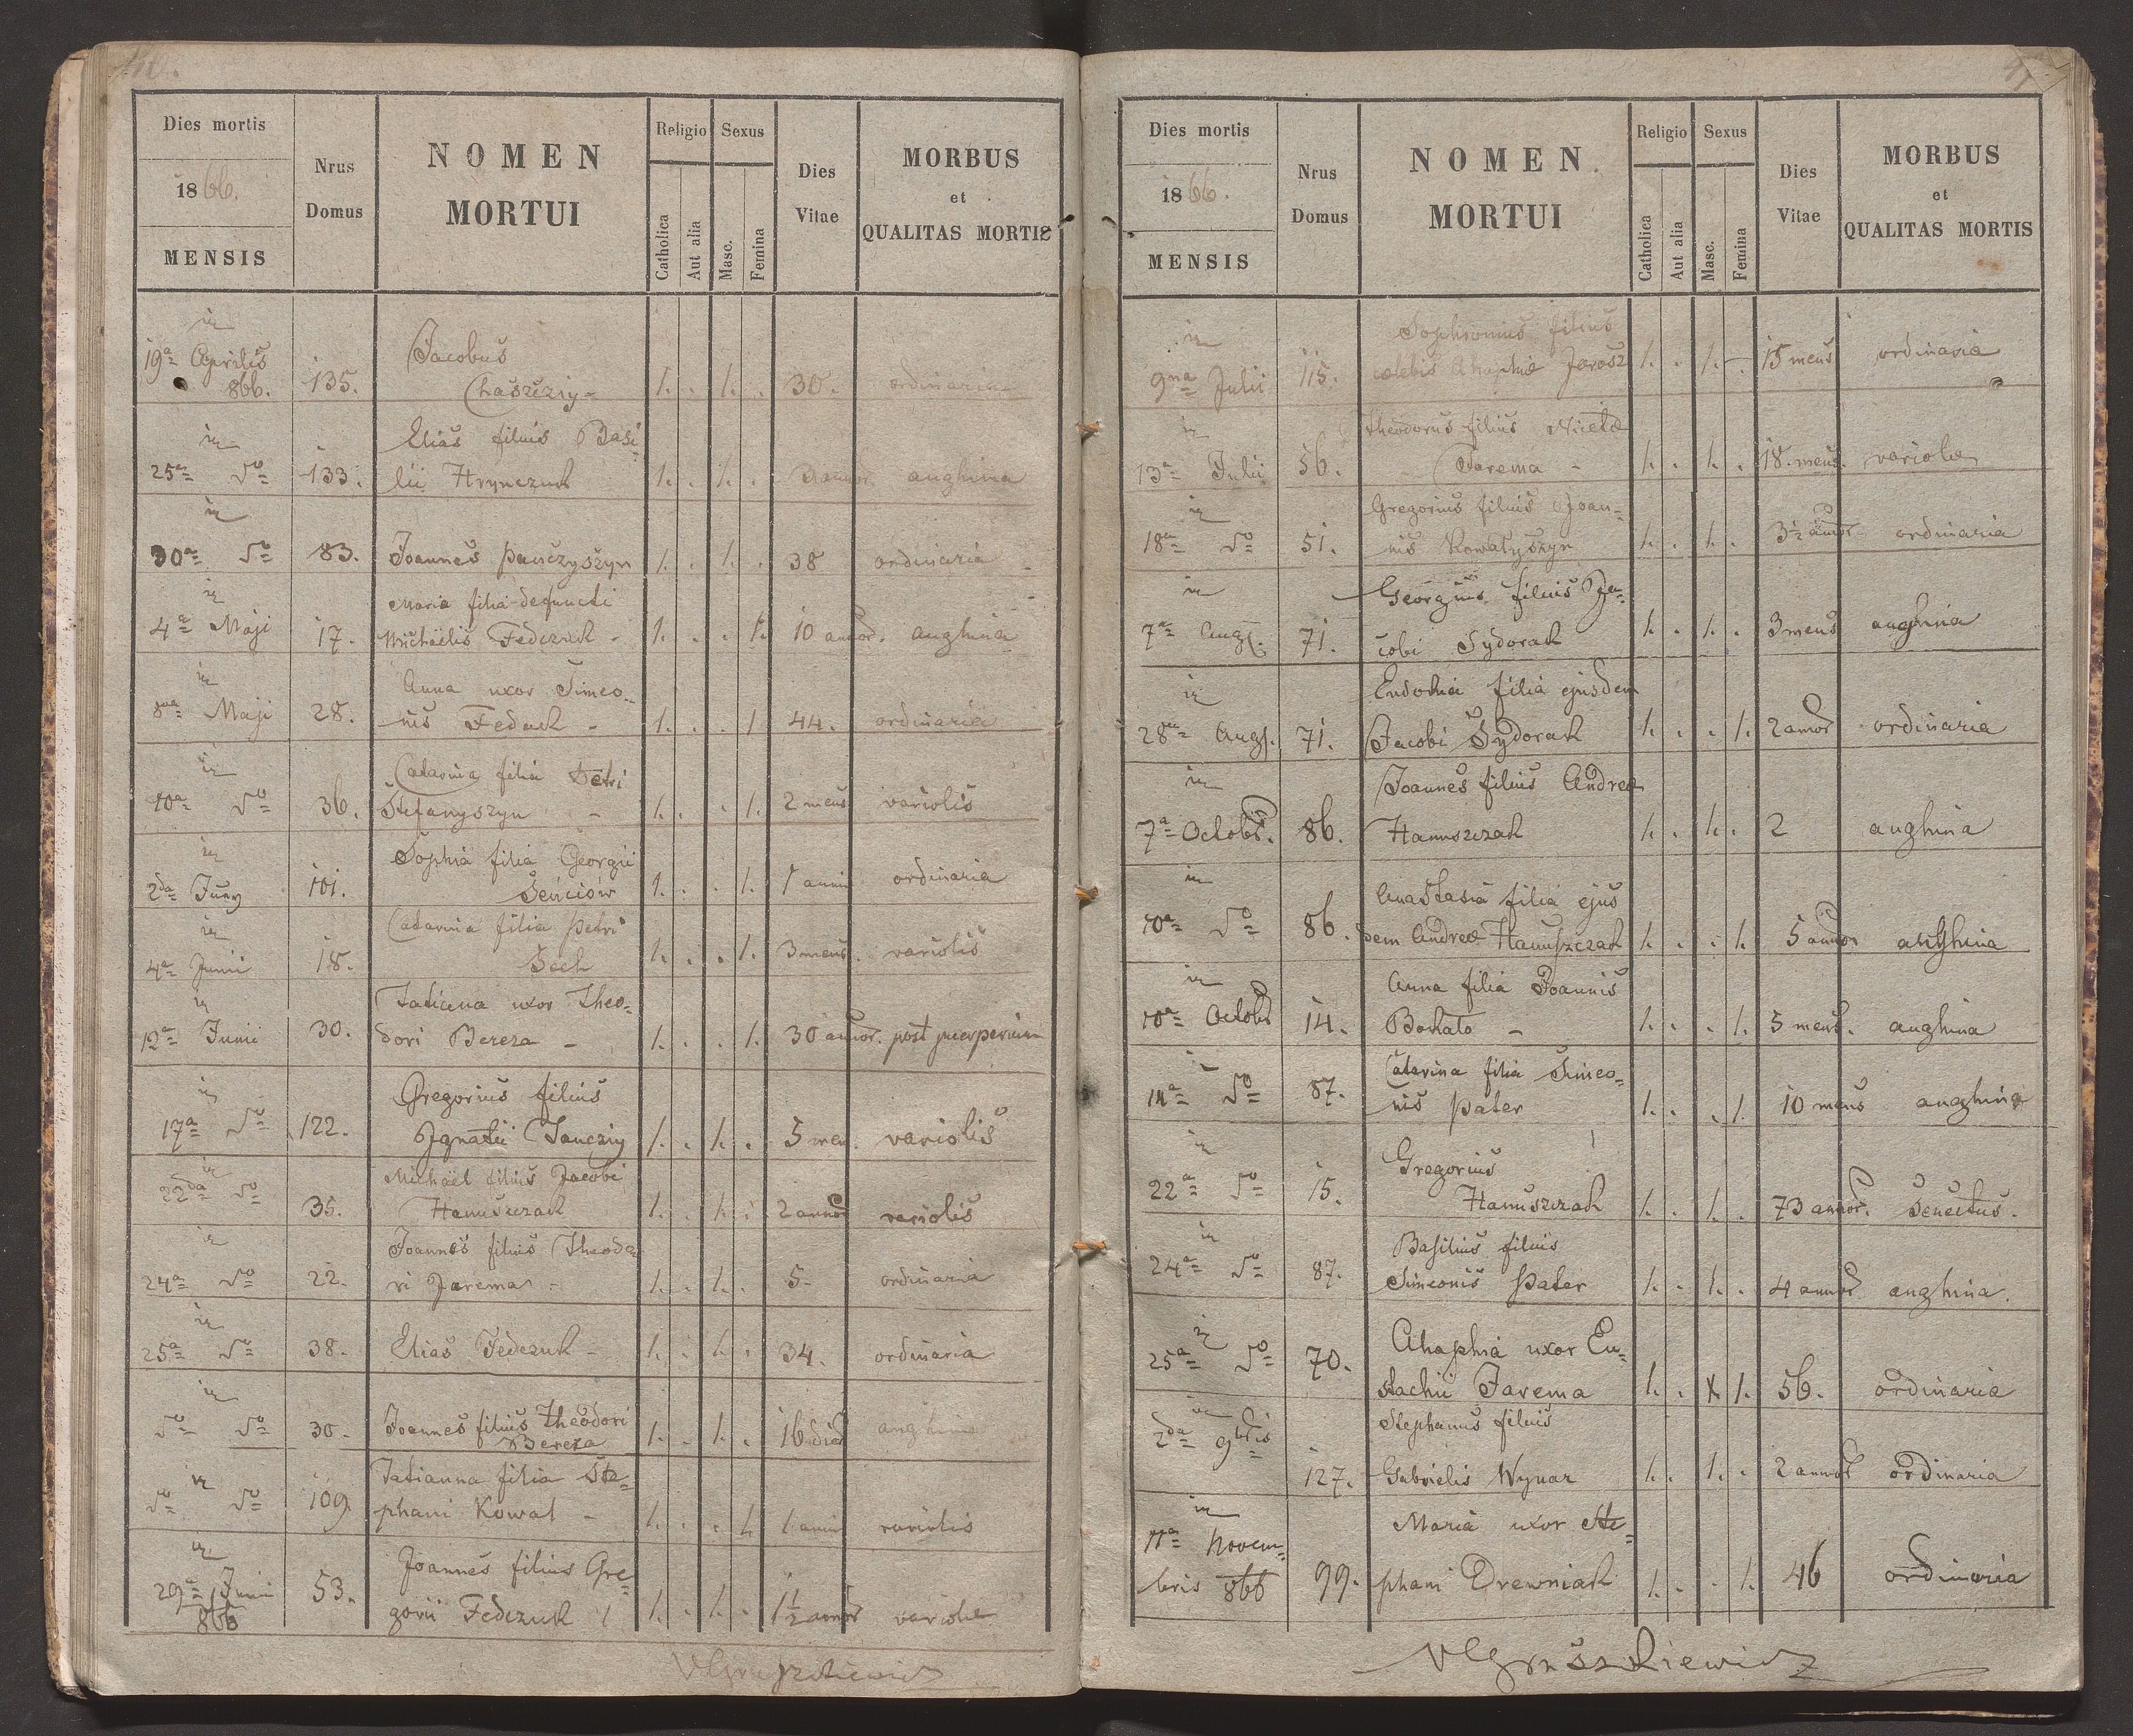 40.
Dies mortis
1866.
MENSIS
Nrus
Domus
NOMEN
MORTUI
Religio
Catholica
Aut alia
Sexus
Masc.
Femina
Dies
Vitae
MORBUS
et
QUALITAS MORTIS
19a Aprilis 866. 135. Jacobus
Chaszcziy - 1. . 1. . 30. ordinaria
25a do 133. Elias filius Basi
lii Hrynczuk 1. . 1. . annor. anghina
30a do 83. Joannes Panczyszyn 1. . 1. . 38 ordinaria
4a Maji 17. Maria filia defuncti
Michaelis Fedczuk - 1. . . 1. 10 annor. anghina
8va Maji 28. Anna uxor Simeo-
nis Fedack - 1. . . 1 44. ordinaria
10a do 36. Catarina filia Petri
Stefanyszyn - 1. . . 1. 2 mens variolis
2da Juny 101. Sophia filia Georgii
Senciów 1. . . 1. 1 anni ordinaria
4a Junii 18. Catarina filia Petri
Sech 1. . . 1. 3 mens. variolis
12a Junii 30. Tatiana uxor Theo-
dori Bereza - 1. . . 1. 30 annor. post puerperium
17a do 122. Gregorius filius
Ignatii Jancziy 1. . 1. . 5 men. variolis
22da do 35. Michael filius Jacobi
Hanuszczak 1. . 1. . 2 annor variolis
24a do 22. Joannes filius Theodo
ri Jarema - 1. . 1. . 5. ordinaria
25a do 38. Elias Fedczuk - 1. . 1. . 34. ordinaria
do do 30. Joannes filius Theodori
Bereza 1. . 1. . 16 dies anghina
do do 109 Tatianna filia Ste-
phani Kowal - 1. . . 1. 1 anni variolis
29a Junii 866 53. Joannes filius Gre-
gorii Fedczuk 1. . 1. . 1½ annor variolae
41.
Dies mortis
1866.
MENSIS
Nrus
Domus
NOMEN
MORTUI
Religio
Catholica
Aut alia
Sexus
Masc.
Femina
Dies
Vitae
MORBUS
et
QUALITAS MORTIS
9na Julii 115. Sophronius filius
caelebis Ahaphiae Jarosz 1. . 1. - 15 mens ordinaria
13a Julii 56. Theodorus filius Nicetae
Jarema - 1. . 1. . 18. mens. variolae
18a do 51. Gregorius filius Joan-
nis Kowalyszyn 1. . 1. . 3½ annor ordinaria
7a Aug. 71. Georgius filius Ja-
cobi Sydorak 1. . 1. . 3 mens anghina
28a Aug. 71. Eudokia filia ejusdem
Jacobi Sydorak 1. . . 1. 2 annor ordinaria
7a Octobr. 86. Joannes filius Andreae
Hanuszczak 1. . 1. . 2 anghina
10a do 86. Anastasia filia ejus
dem Andreae Hanuszczak 1. . . 1. 5 annor anghina
10a Octobr 14. Anna filia Joannis
Bokalo - 1. . . 1. 5 mens. anghina
14a do 87. Catarina filia Simeo-
nis Pater 1. . . 1. 10 mens anghina
22a do 15. Gregorius
Hanuszczak 1. . 1. . 73 annor. Senectus.
24a do 87. Basilius filius
Simeonis Pater 1. . 1. . 4 annor anghina.
25a do 70. Ahaphia uxor Eu-
stachii Jarema 1. . x 1. 56. ordinaria
2da 9bris 127. Stephanus filius
Gabrielis Wynar 1. . 1. . 2 annor ordinaria
11a Novem-
bris 866 99. Maria uxor Ste-
phani Drewniak 1. . . 1. 46 ordinaria